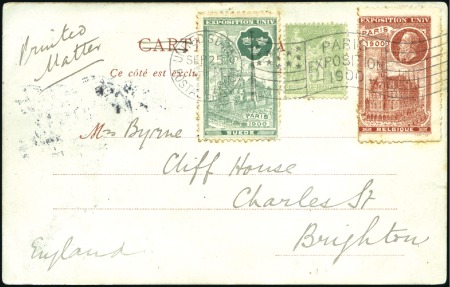 Printed
Matter
EXPOSITION UNIV
PARIS
1900
SUEDE
SEP 25
PARIS
EXPOSITION
1900
EXPOSITION UNIV
PARIS
1900
BELGIQUE
Ce côté est
Mrs Byrne
Cliff House
Charles St
Brighton
England